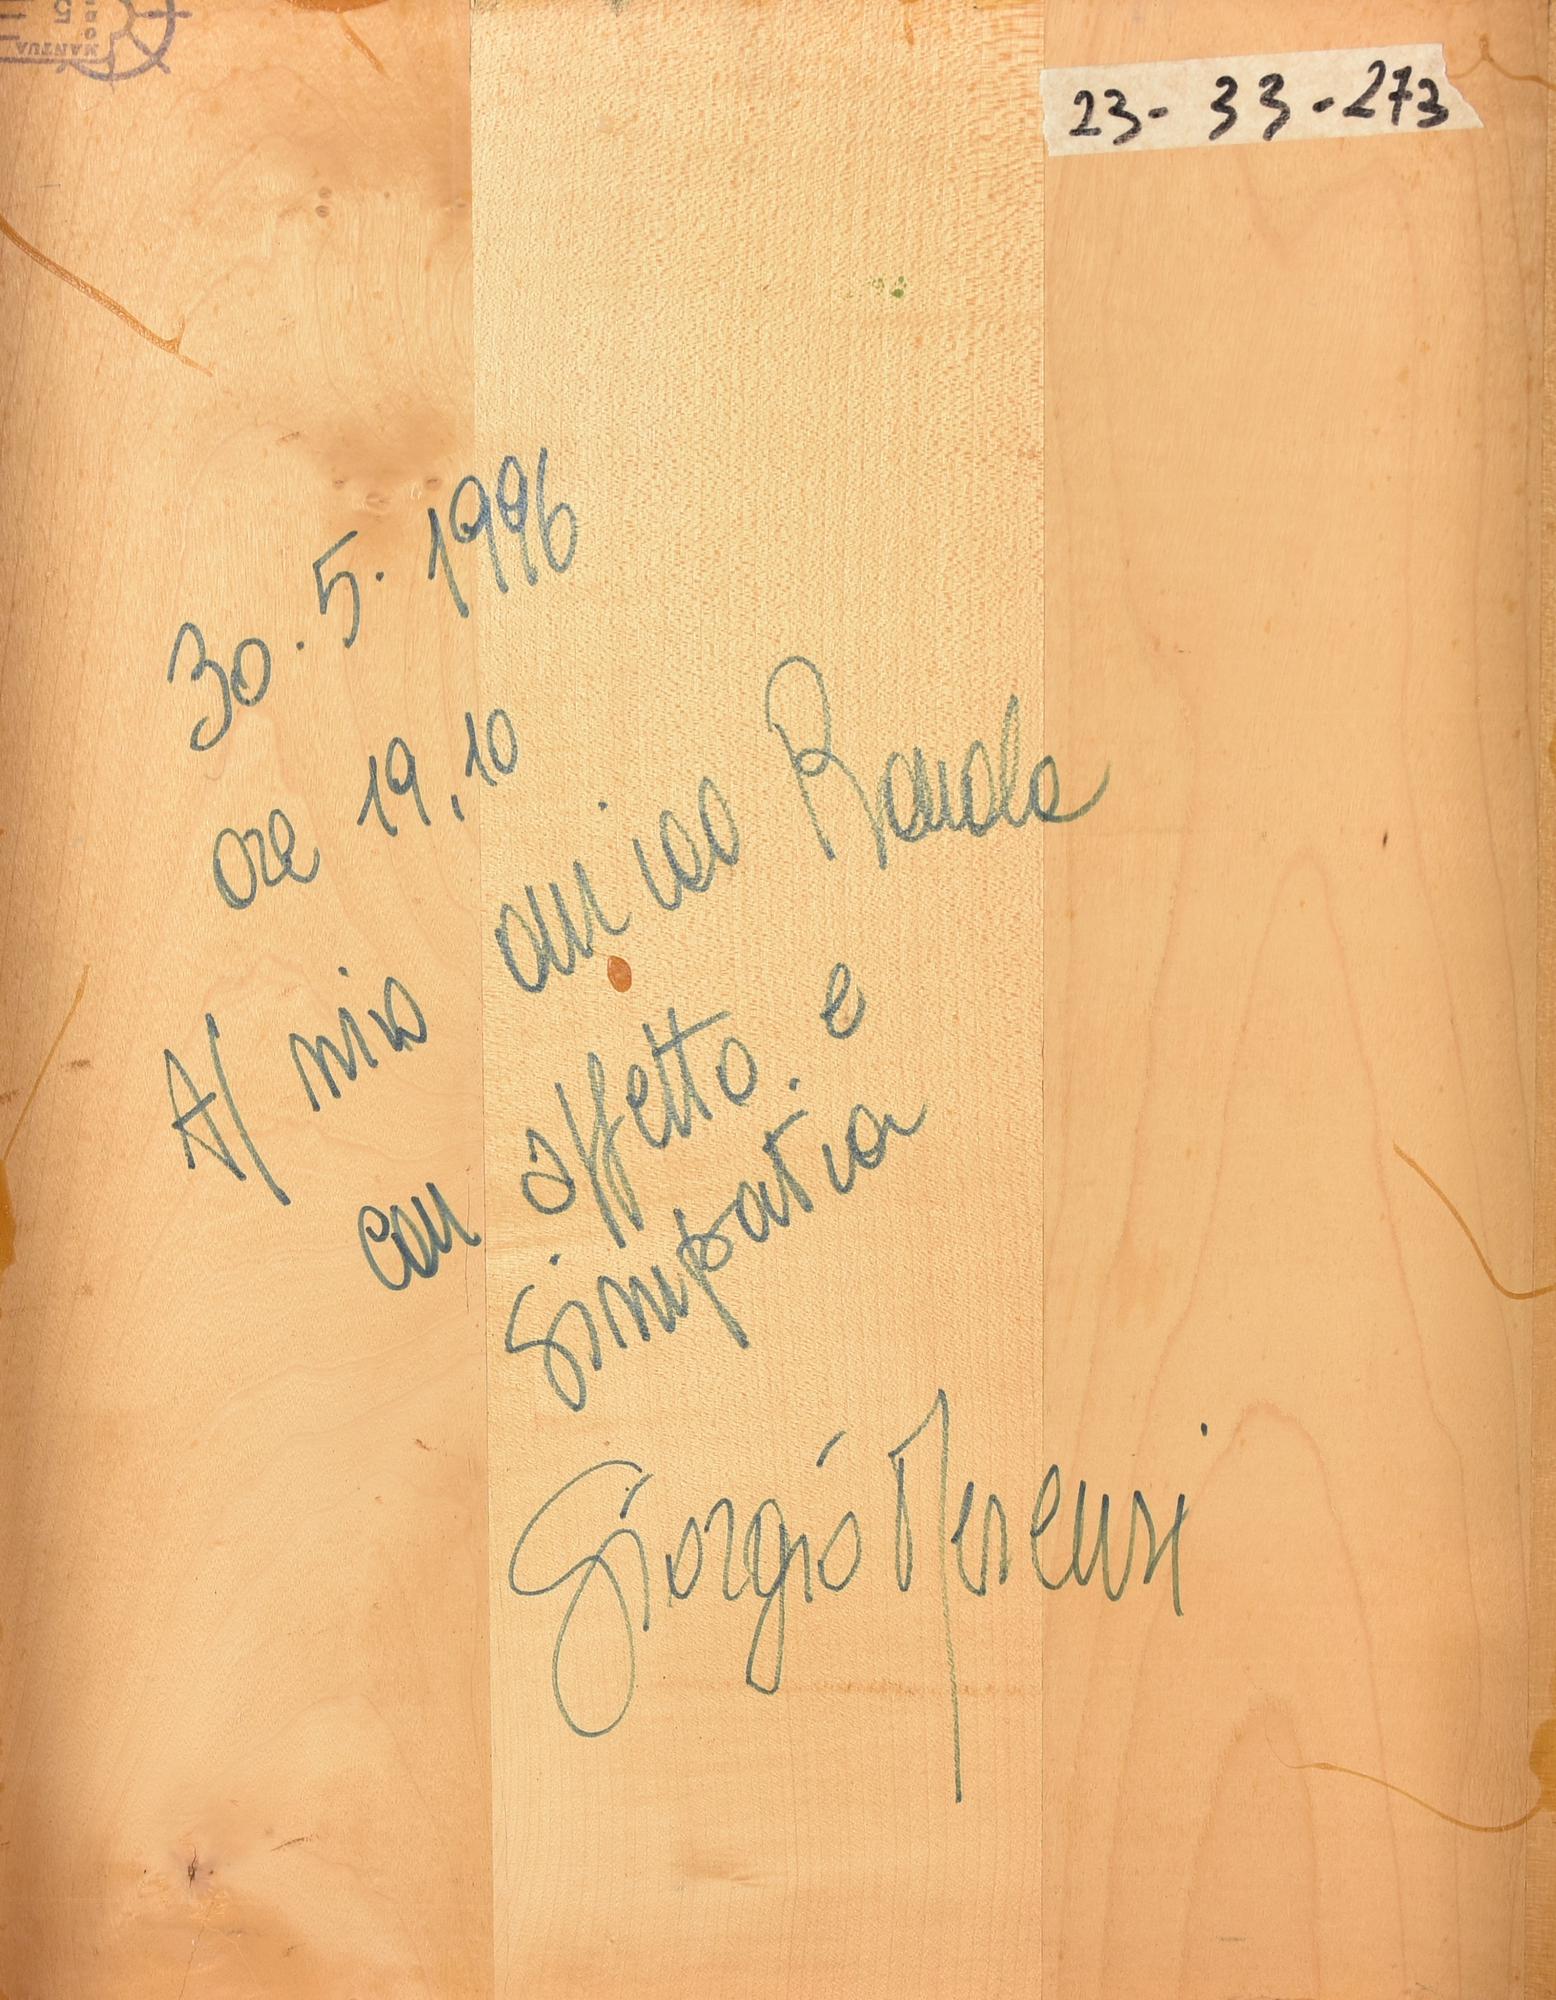 23-33-273
MANTUA
30.5.1996
ore 19,10
Al mio amico
con affetto. e
simpatia
Giorgio